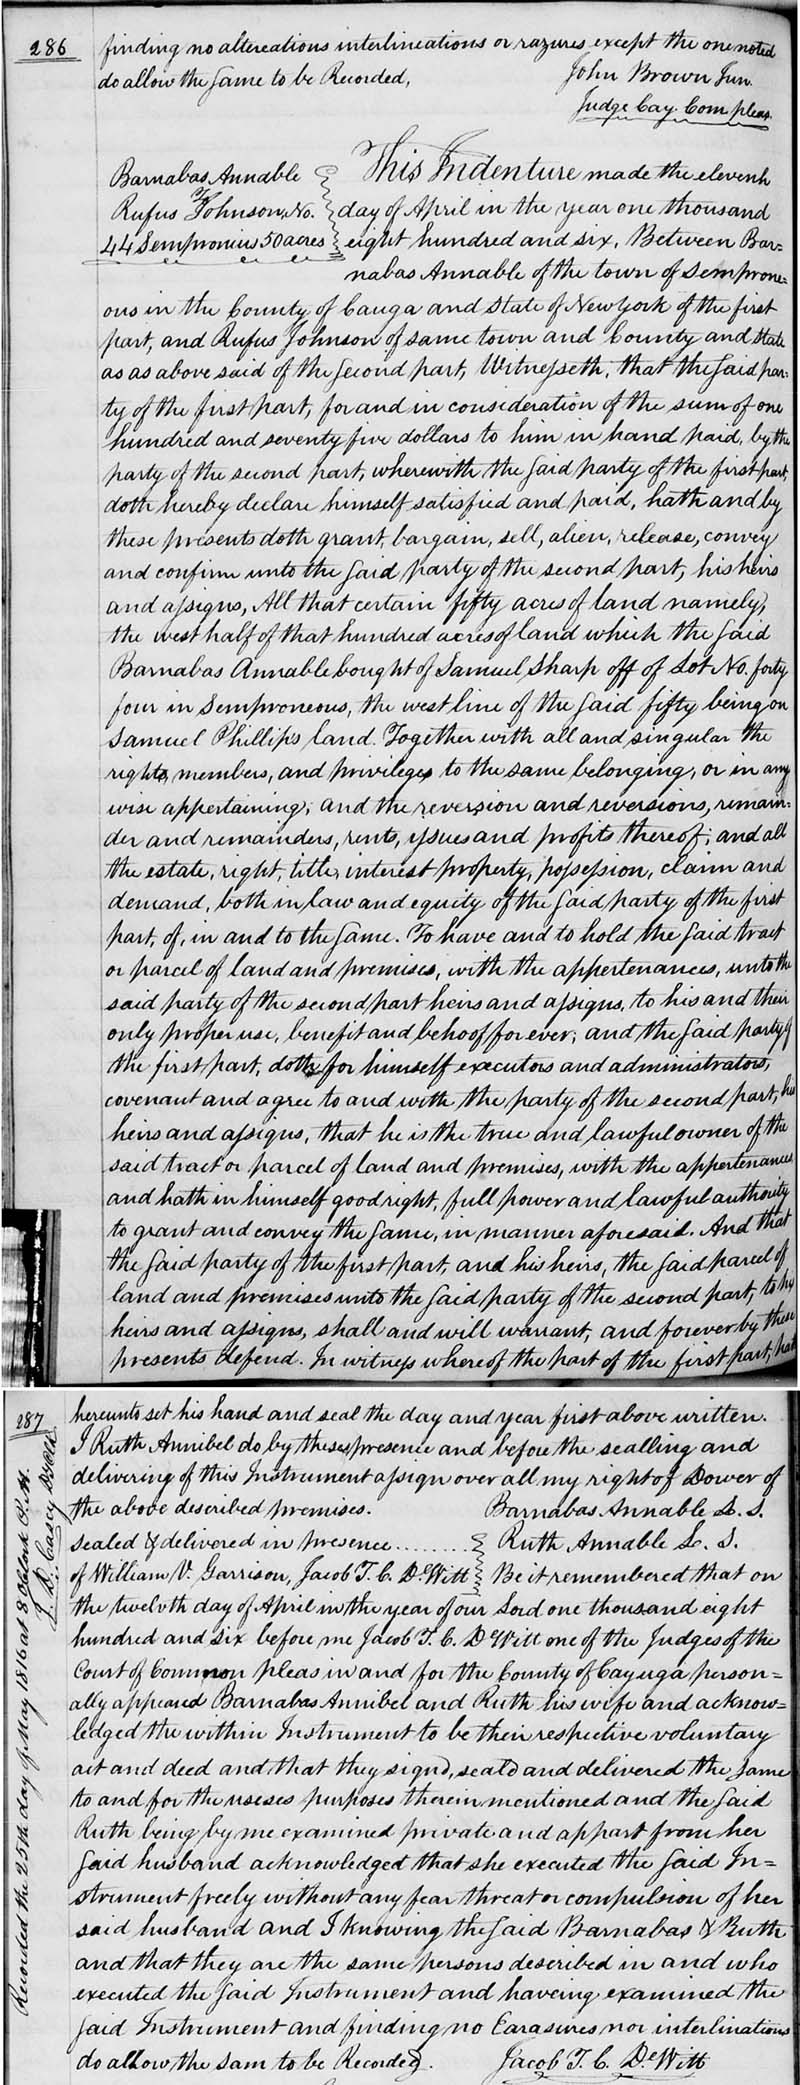 286
finding no altereations interlineations or razures except the one noted
do allow the same to be Recorded,
John Brown Jun.
Judge Cay. Com pleas.
Barnabas Annable
To
Rufus Johnson, No.
44 Sempronius 50 acres
This Indenture made the eleventh
day of April in the year one thousand
eight hundred and six, Between Bar=
nabas Annable of the town of Semprone=
ous in the County of Cauga and State of New York of the first
part, and Rufus Johnson of same town and County and State
as as above said of the second part, Witnesseth, that the said par=
ty of the first part, for and in consideration of the sum of one
hundred and seventy five dollars to him in hand paid, by the
party of the second part, wherewith the said party of the first part,
doth hereby declare himself satisfied and paid, hath and by
these presents doth grant, bargain, sell, alien, release, convey
and confirm unto the said party of the second part, his heirs
and assigns, All that certain fifty acres of land namely,
the west half of that hundred acres of land which the said
Barnabas Annable bought of Samuel Sharp off of Lot No. forty
four in Semproneous, the west line of the said fifty being on
Samuel Phillips land. Together with all and singular the
rights, members, and privileges to the same belonging, or in any
wise appertaining, and the reversion and reversions, remain=
der and remainders, rents, issues and profits thereof; and all
the estate, right, title, interest property, possession, claim and
demand, both in law and equity of the said party of the first
part, of, in and to the same. To have and to hold the said tract
or parcel of land and premises, with the appertenances, unto the
said party of the second part heirs and assigns, to his and their
only proper use, benefit and behoof for ever; and the said party of
the first part, doth for himself executors and administrators,
covenant and agree to and with the party of the second part, his
heirs and assigns, that he is the true and lawful owner of the
said tract or parcel of land and premises, with the appertenances
and hath in himself good right, full power and lawful authority
to grant and convey the same, in manner aforesaid. And that
the said party of the first part, and his heirs, the said parcel of
land and premises unto the said party of the second part, to his
heirs and assigns, shall and will warrant, and forever by these
presents defend. In witness whereof the part of the first part, hath
287
hereunto set his hand and seal the day and year first above written.
I Ruth Annibel do by theses presence and before the sealling and
delivering of this Instrument assign over all my right of Dower of
the above described premises.
Barnabas Annable L. S.
sealed & delivered in presence........
Ruth Annable L. S.
of William V. Garrison, Jacob T. C. DeWitt
Be it remembered that on
the twelvth day of April in the year of our Lord one thousand eight
hundred and six before me Jacob T. C. DeWitt one of the Judges of the
Court of Common pleas in and for the County of Cayuga person=
ally appeared Barnabas Annibel and Ruth his wife and acknow=
ledged the within Instrument to be their respective voluntary
act and deed and that they signd, seald and delivered the same
to and for the useses purposes therein mentioned and the said
Ruth being by me examined private and appart from her
said husband acknowledged that she executed the said In=
strument freely without any fear threat or compulsion of her
said husband and I knowing the said Barnabas & Ruth
and that they are the same persons described in and who
executed the said Instrument and haveing examined the
said Instrument and finding no Earasures nor interlinations
do allow the sam to be Recorded.
Jacob T. C. DeWitt
Recorded the 25th day of May 1816 at 8 Oclock P.M.
Casey D. Clk